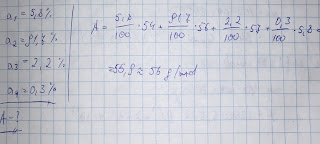 a₁ = 5,8%
a₂ = 91,7%
a₃ = 2,2%
a₄ = 0,3%
A - ?
A = 5,8/100 · 54 + 91,7/100 · 56 + 2,2/100 · 57 + 0,3/100 · 5,8 =
= 55,9 ≈ 56 g/mol